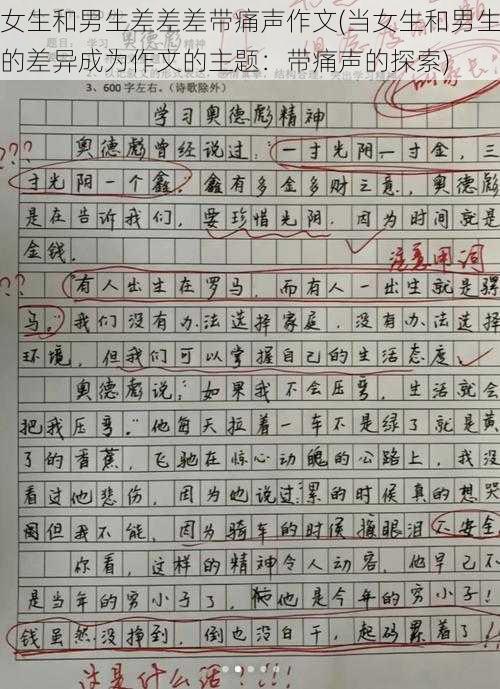 女生和男生差差差带痛声作文(当女生和男生
的差异成为作文的主题：带痛声的探索)
3、600字左右。（诗歌除外）
学习奥德彪精神
???
奥德彪曾经说过："一寸光阴一寸金，三
寸光阴一个鑫。"鑫有多金多财之意，奥德彪
是在告诉我们，要珍惜光阴，因为时间就是
金钱。
注意用词
??
"有人出生在罗马，而有人一出生就是骡
马。"我们没有办法选择家庭，没有办法选择
环境，但我们可以掌握自己的生活态度。
奥德彪说："如果我不会压弯，生活就会
把我压弯。"他每天拉着一车不是绿了就是黄
了的香蕉，飞驰在惊心动魄的公路上，我没
看过他悲伤，因为他说过：累的时候真的想哭
但我不能，因为骑车的时候擦眼泪不安全
你看，这样的精神令人动容，他早已不
是当年的穷小子了，他是今年的穷小子！
钱虽然没挣到，倒也没白干，起码累着了！
这是什么话?!!!